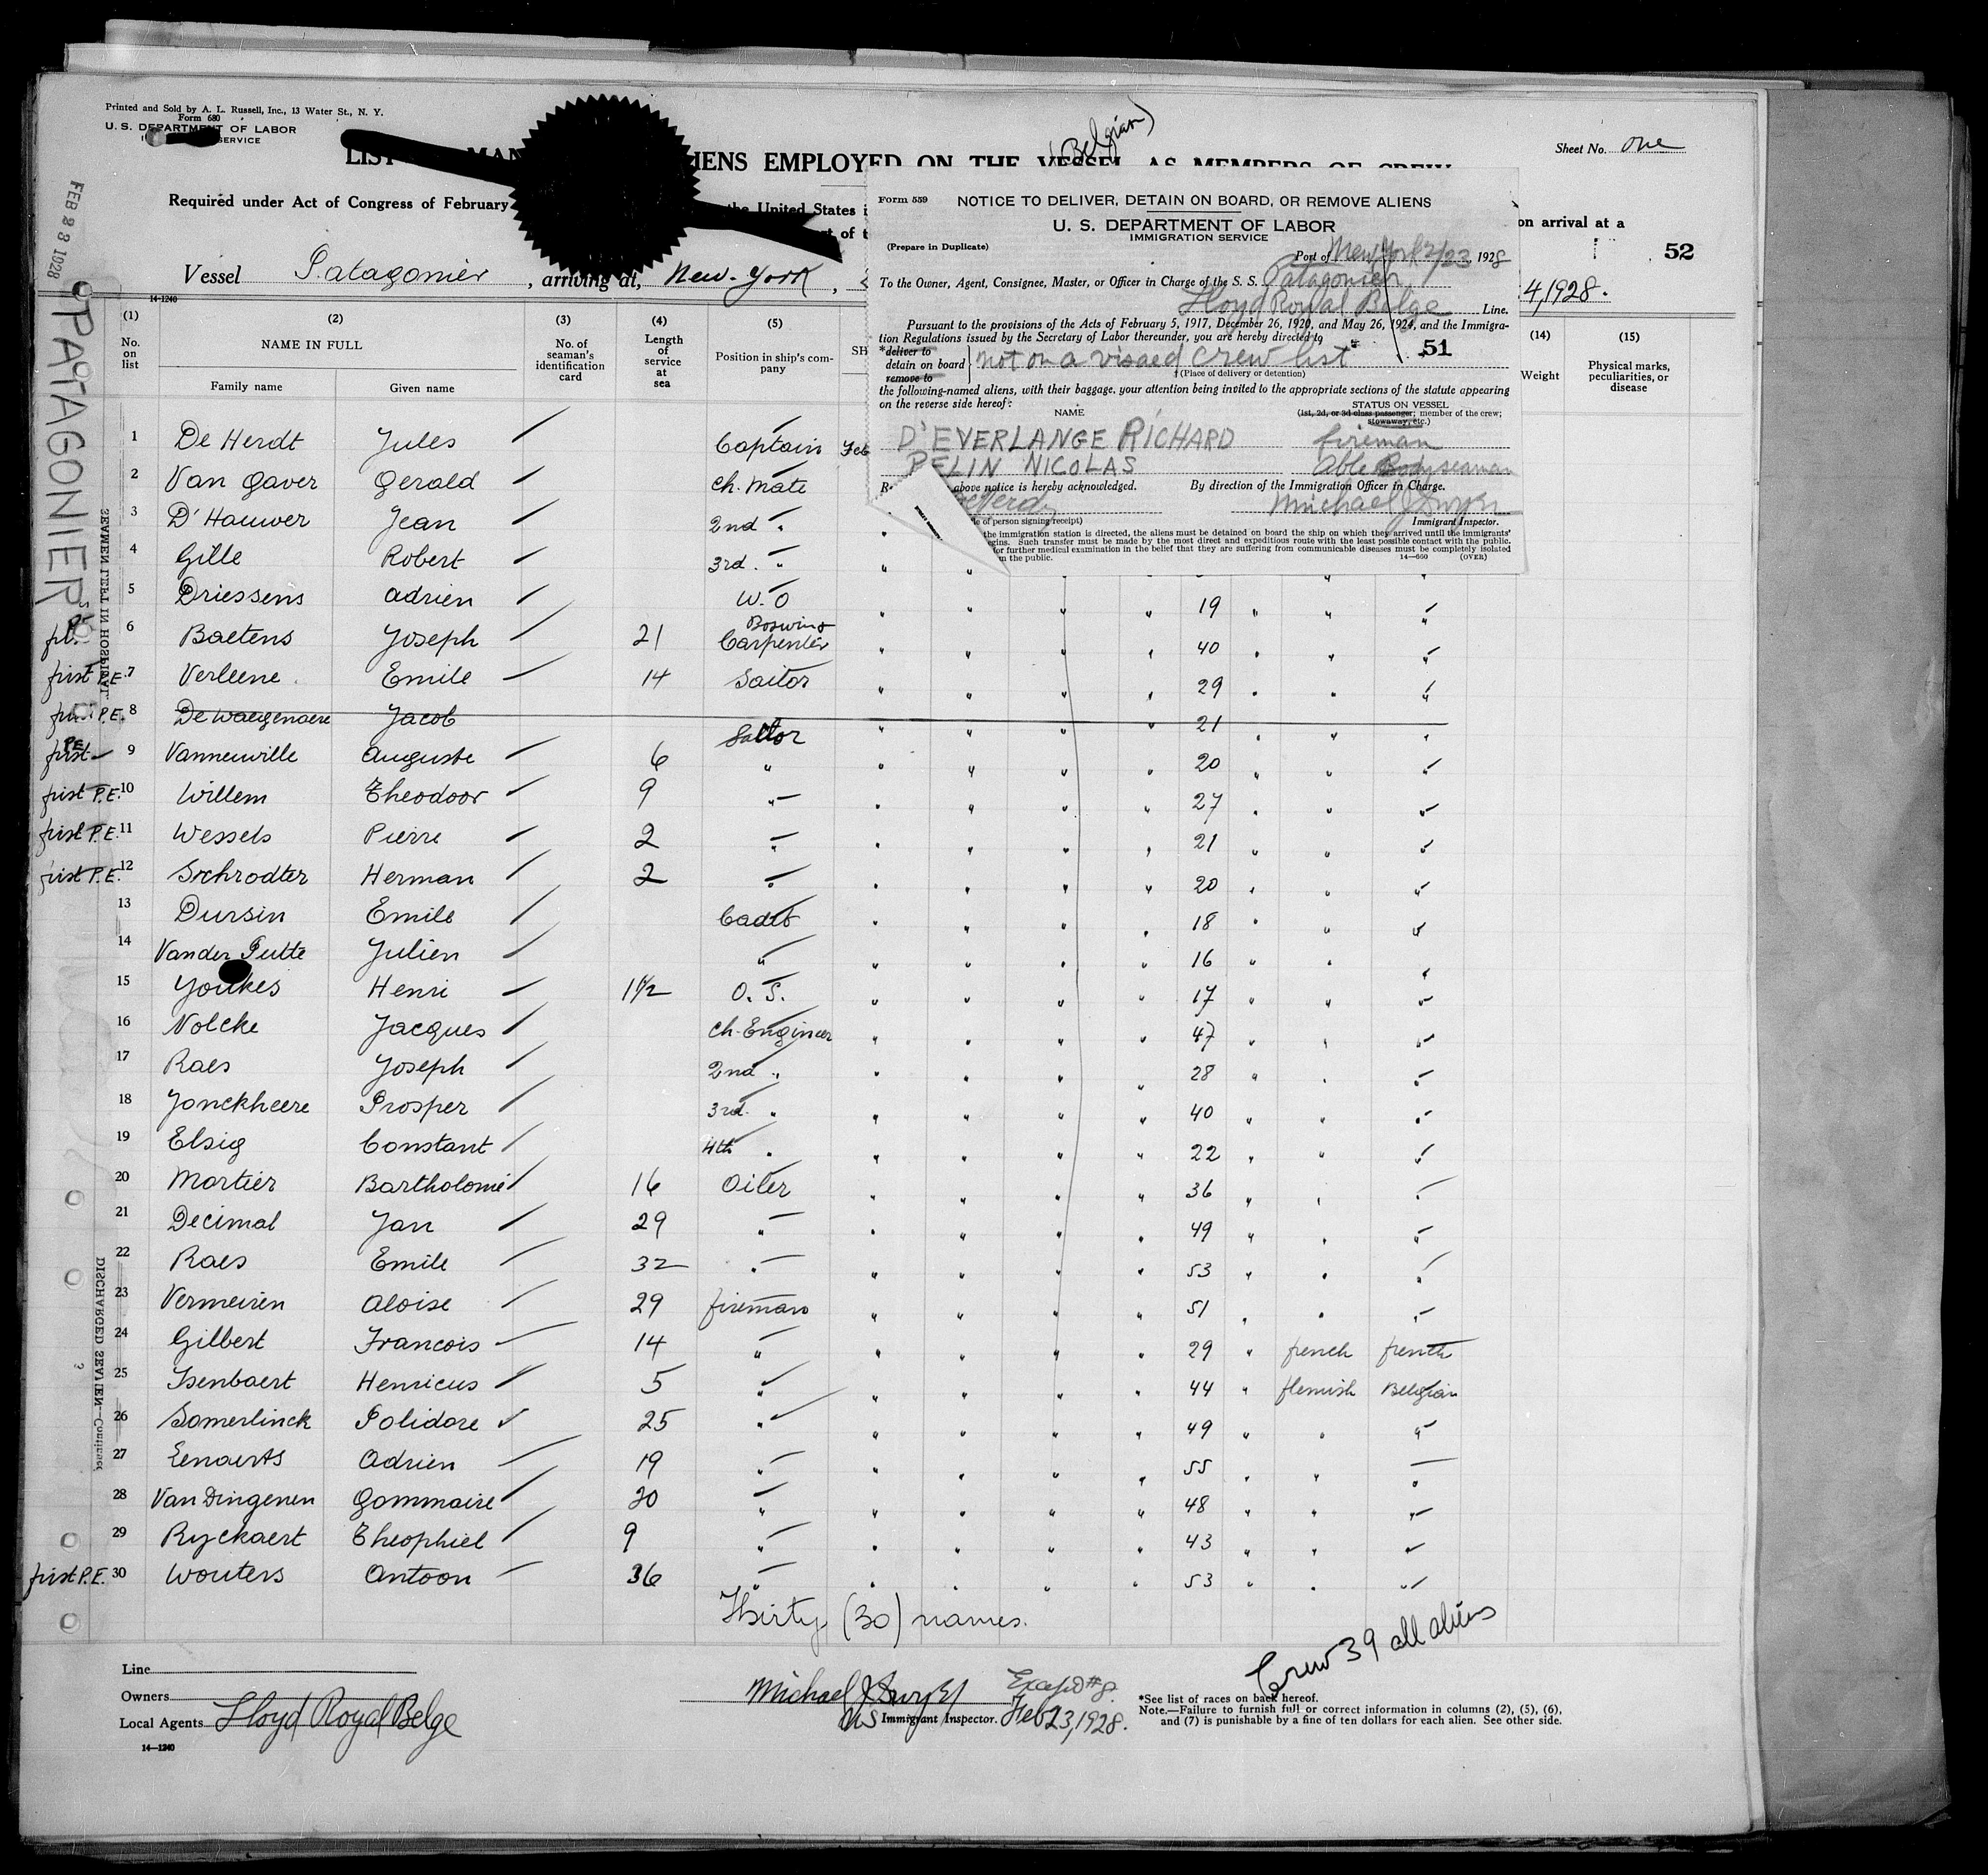 Printed and Sold by A. L. Russell, Inc., 13 Water St., N. Y.
Form 680
U. S. DEPARTMENT OF LABOR
SERVICE
(Belgian)
Sheet No. one
LIST IENS EMPLOYED ON THE VESSEL AS MEMBERS OF CREW
Required under Act of Congress of February the United States on arrival at a
52
FEB 23 1928
Vessel Patagonier, arriving at, New-York, 4, 1928.
14-1240
PATAGONIER
Form 559 NOTICE TO DELIVER, DETAIN ON BOARD, OR REMOVE ALIENS
U. S. DEPARTMENT OF LABOR
IMMIGRATION SERVICE
(Prepare in Duplicate)
Port of New York 2/23, 1928
To the Owner, Agent, Consignee, Master, or Officer in Charge of the S. S. Patagonier
Lloyd Royal Belge Line.
Pursuant to the provisions of the Acts of February 5, 1917, December 26, 1920, and May 26, 1924, and the Immigra-
tion Regulations issued by the Secretary of Labor thereunder, you are hereby directed to
51
*deliver to
detain on board not on a visaed crew list
remove to
†(Place of delivery or detention)
the following-named aliens, with their baggage, your attention being invited to the appropriate sections of the statute appearing
on the reverse side hereof:
NAME STATUS ON VESSEL
(1st, 2d, or 3d class passenger; member of the crew;
stowaway, etc.)
D'EVERLANGE RICHARD fireman
PELIN NICOLAS Able Body seaman
above notice is hereby acknowledged. By direction of the Immigration Officer in Charge.
Michael J Dwyer
of person signing receipt) Immigrant Inspector.
the immigration station is directed, the aliens must be detained on board the ship on which they arrived until the immigrants'
egins. Such transfer must be made by the most direct and expeditious route with the least possible contact with the public.
for further medical examination in the belief that they are suffering from communicable diseases must be completely isolated
m the public. 14-660 (OVER)
(1) (2) (3) (4) (5) (14) (15)
No. on list NAME IN FULL No. of seaman's identification card Length of service at sea Position in ship's com-pany SH Weight Physical marks, peculiarities, or disease
Family name Given name
1 De Herdt Jules Captain Feb
2 Van Gaver Gerald Ch. Mate
3 D'Hauwer Jean 2nd "
4 Gille Robert 3rd. "
5 Driessens Adrien W. O 19 " " "
first 6 Baetens Joseph 21 Boswin & Carpenter 40 " " "
first P.E. 7 Verleene Emile 14 Sailor 29 " " "
first P.E. 8 De Waegenaere Jacob Sailor 21 " " "
first P.E. 9 Vanneuville Auguste 6 " 20 " " "
first P.E. 10 Willem Theodoor 9 " 27 " " "
first P.E. 11 Wessels Pierre 2 " 21 " " "
first P.E. 12 Schrodter Herman 2 " 20 " " "
13 Dursin Emile Cadet 18 " " "
14 Vander Putte Julien " 16 " " "
15 Youkes Henri 1 1/2 O. S. 17 " " "
16 Nolcke Jacques Ch-Engineer 47 " " "
17 Raes Joseph 2nd " 28 " " "
18 Jonckheere Prosper 3rd. " 40 " " "
19 Elsig Constant 4th " 22 " " "
20 Mortier Bartholomé 16 Oiler 36 " " "
21 Decimal Jan 29 " 49 " " "
22 Raes Emile 32 " 53 " " "
23 Vermeiren Aloise 29 fireman 51 " " "
24 Gilbert Francois 14 " 29 " french french
25 Isenbaert Henricus 5 " 44 " flemish Belgian
26 Somerlinck Polidore 25 " 49 " " "
27 Lenaerts Adrien 19 " 55 " " "
28 Van Dingenen Gommaire 20 " 48 " " "
29 Ryckaert Theophiel 9 " 43 " " "
first P.E. 30 Wouters Antoon 36 " 53 " " "
Thirty (30) names.
Crew 39 all aliens
SEAMEN LEFT IN HOSPITAL
DISCHARGED SEAMEN—Continued
Line
Owners
Local Agents Lloyd Royal Belge
14-1240
Michael J Dwyer Except #8.
US Immigrant Inspector. Feb 23, 1928.
*See list of races on back hereof.
Note.—Failure to furnish full or correct information in columns (2), (5), (6),
and (7) is punishable by a fine of ten dollars for each alien. See other side.